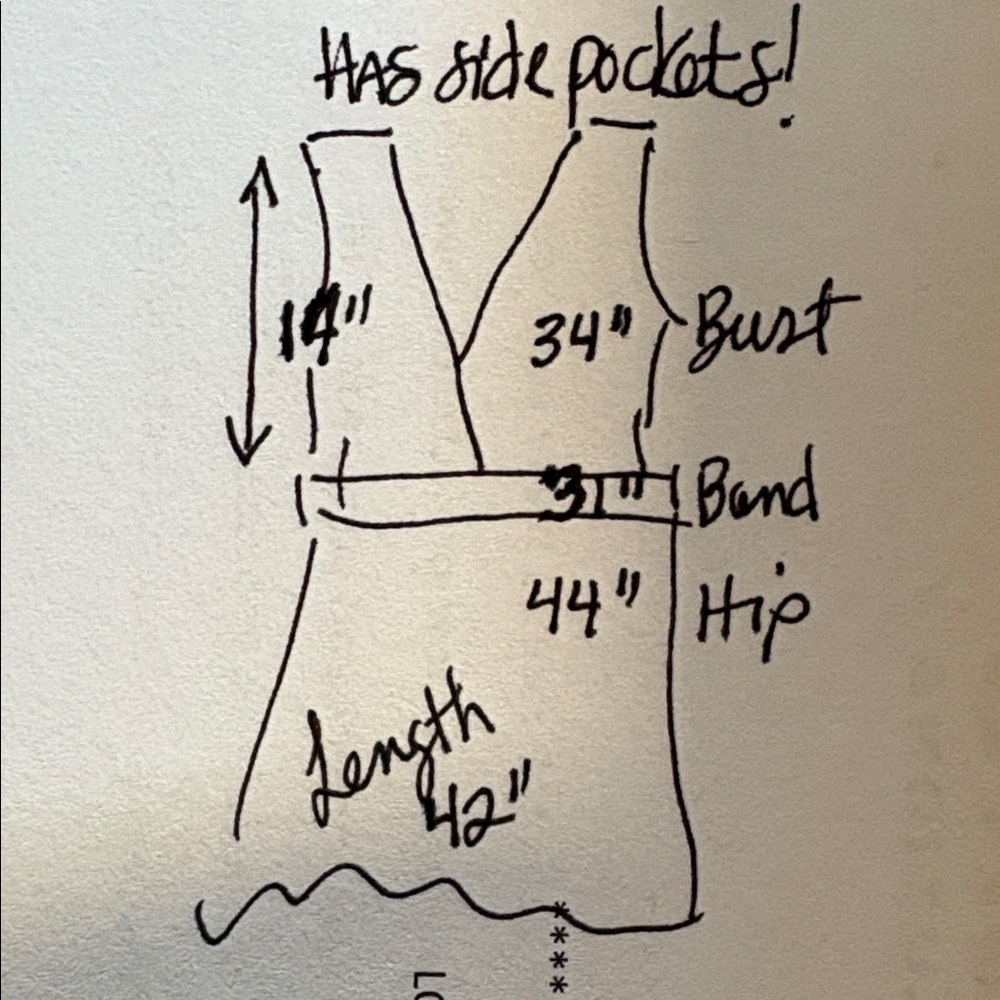 HAS side pockets!
14"
34" Bust
31" Band
44" Hip
Length
42"
****